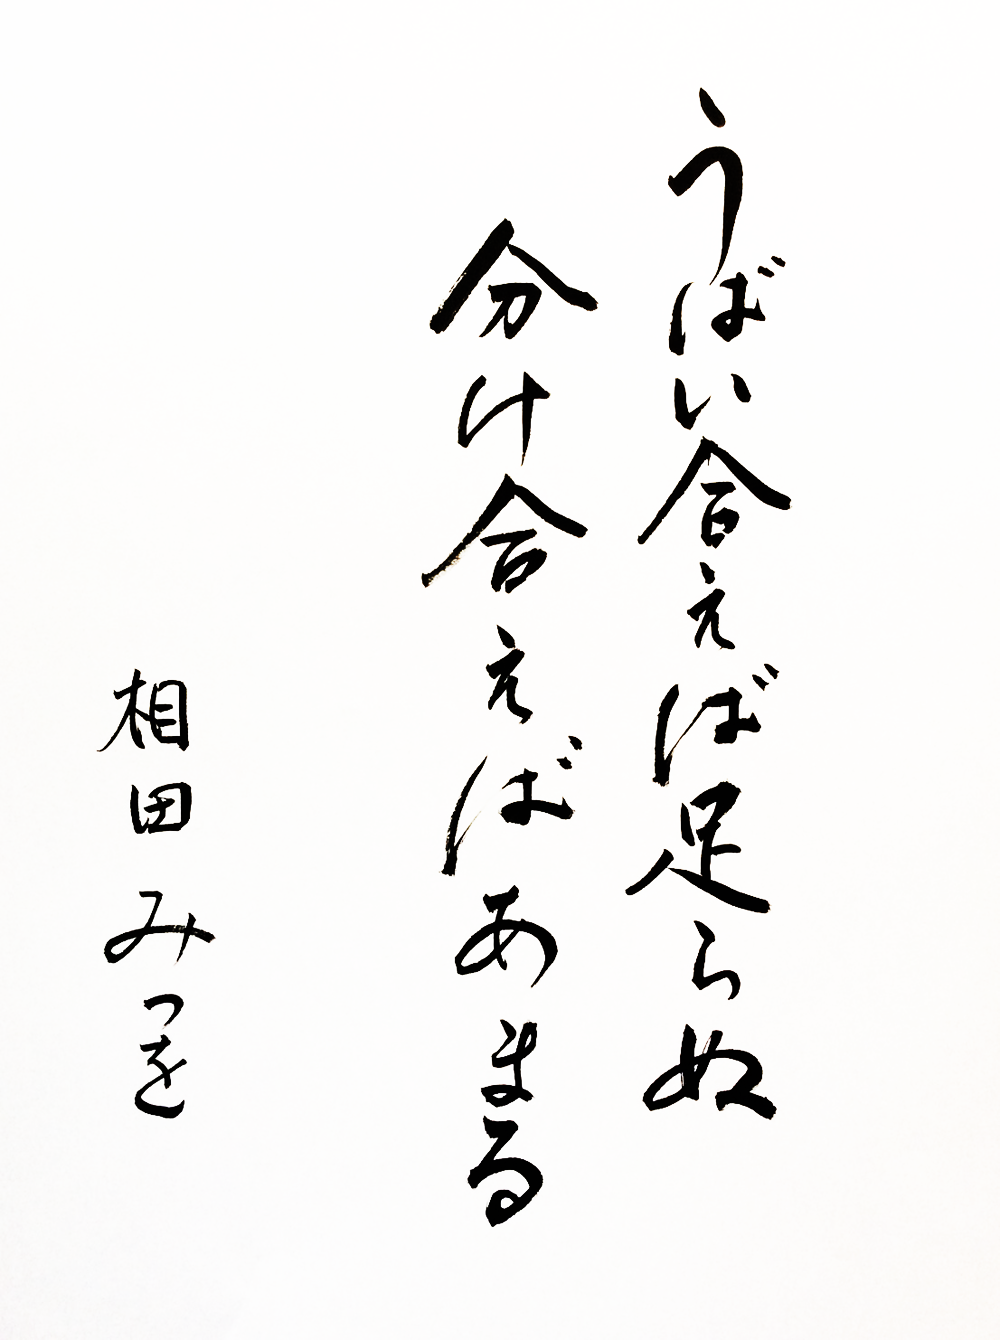 うばい合えば足らぬ
分け合えばあまる
相田みつを